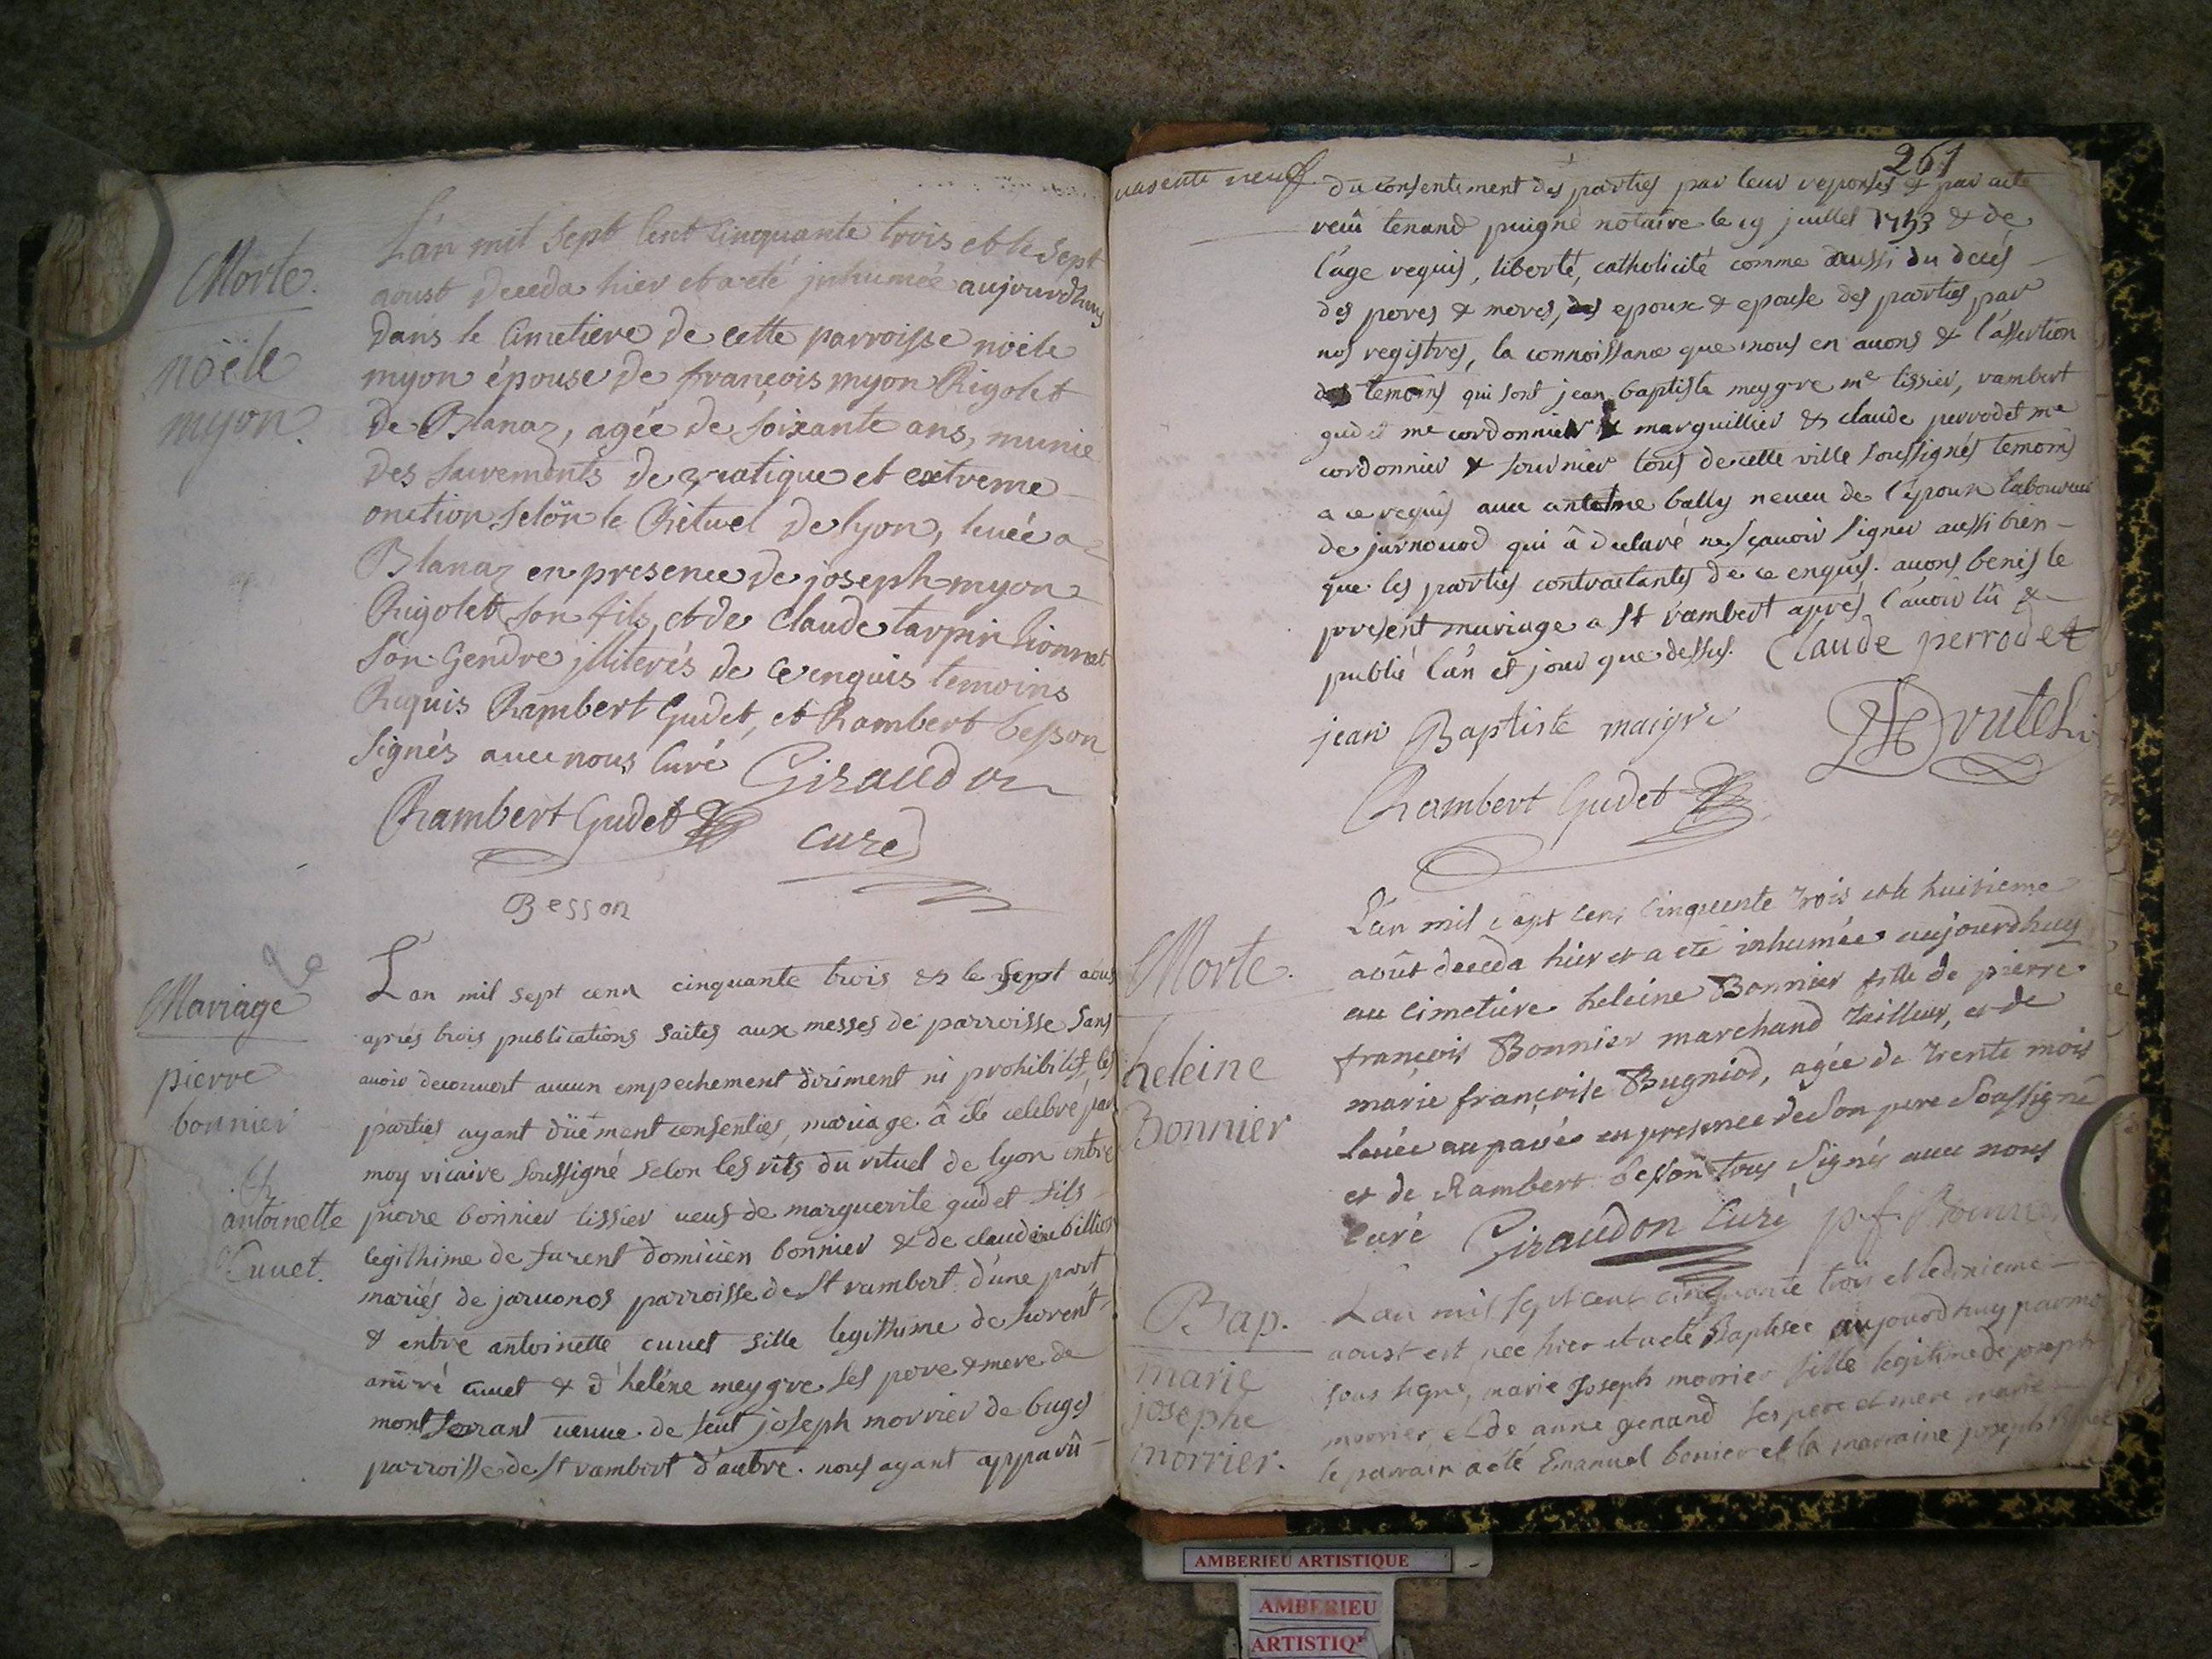 Morte.
noële
myon.
L'an mil sept cent cinquante trois et le sept
aoust deceda hier et a eté jnhumée aujourdhuy
dans le cimetiere de cette parroisse noële
myon épouse de françois myon Rigolet
de Blanaz, agée de soixante ans, munie
des sacrements de viatique et extreme
onction selon le Rituel de lyon, levée a
Blanaz en presence de joseph myon
Rigolet son fils, et de Claude tarpin lionnet
son Gendre jlliterés de ce enquis temoins
Requis Rambert Gudet, et Rambert besson
signés avec nous Curé Giraudon
Rambert Gudet curé
Besson
Mariage de
pierre
bonnier
et
antoinette
Cuuet.
L'an mil sept cent cinquante trois & le sept aoust
aprés trois publications faites aux messes de parroisse sans
avoir decouvert aucun empechement diriment ni prohibitif, les
parties ayant düement consenties, mariage â été celebré par
moy vicaire soussigné selon les rits du rituel de lyon entre
pierre bonnier tissier veuf de marguerite gudet fils
legithime de furent domicien bonnier & de claudine billion
mariés de jaruonos parroisse de St rambert d'une part
& entre antoinette cuuet fille legithime de furent
andré cuuet & d'heléne meygre ses pere & mere de
montferrant veuve de feut joseph morrier de buges
parroisse de St rambert d'autre. nous ayant apparû
uasente neuf.
261
du consentement des parties par leur reponses & par acte
reçû tenand puigne notaire le 19 juillet 1753 & de
l'age requis, liberté, catholicité comme aussi du decés
des peres & meres, des epoux & epouse des parties par
nos registres, la connoissance que nous en auons & l'assertion
des temoins qui sont jean baptiste meygre me tissier, rambert
gudet me cordonnier & marguillier & claude perrodet me
cordonnier & fournier tous de cette ville soussignés temoins
a ce requis avec antoine bally neveu de l'époux laboureur
de jarnouod qui â declaré ne sçavoir signer aussi bien
que les parties contractantes de ce enquis. auons benis le
present mariage a St rambert aprés l'auoir lû &
publié l'an et jour que dessus. Claude perrodet
jean Baptiste maigre
Rambert Gudet
Morte.
heleine
Bonnier
L'an mil sept cent cinquente trois et le huitieme
août deceda hier et a eté inhumée aujourdhuy
au cimetiere heleine Bonnier fille de pierre
françois Bonnier marchand tailleur, et de
marie françoise Bugniod, agée de trente mois
levée au pavé en presence de son pere soussigné
et de Rambert besson tous signés avec nous
curé Giraudon Curé p. f. Bonnier
Bap.
marie
josephe
morrier.
L'an mil sept cent cinquante trois et le dixieme
aoust est née hier et a eté Baptisée aujourdhuy par moy
sous signé, marie Joseph morrier fille legitime de joseph
morrier, et de anne genand ses pere et mere marié
le parrain a eté Emanuel bonier et la marraine joseph
AMBERIEU ARTISTIQUE
AMBERIEU
ARTISTIQ